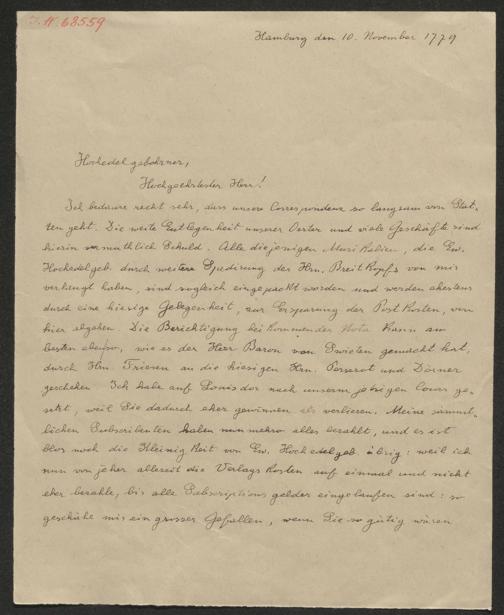 I.N. 68559
Hamburg den 10. November 1779
Hochedelgebohrner,
Hochgeehrtester Herr!
Ich bedaure recht sehr, dass unsere Correspondenz so langsam von Stat-
ten geht. Die weite Entlegenheit unserer Oerter und viele Geschäfte sind
hierin vermuthlich Schuld. Alle diejenigen Musikalien, die Ew.
Hochedelgeb. durch weitere Spedirung des Hrn. Breitkopfs von mir
verlangt haben, sind sogleich eingepackt worden und werden ehestens
durch eine hiesige Gelegenheit, zur Ersparung der Postkosten, von
hier abgehen. Die Berichtigung beikommender Nota kann am
besten ebenso, wie es der Herr Baron von Swieten gemacht hat,
durch Hrn. Fries an die hiesigen Hrn. und Dörner
geschehen. Ich habe auf Louisdor nach unserm jetzigen Cours ge-
setzt, weil Sie dadurch eher gewinnen als verlieren. Meine sämmt-
lichen Subscribenten haben nunmehro alles bezahlt, und es ist
blos noch die Kleinigkeit von Ew. Hochedelgeb übrig: weil ich
nun von jeher allezeit die Verlagskosten auf einmal und nicht
eher bezahle, bis alle Subscriptionsgelder eingelaufen sind: so
geschähe mir ein grosser Gefallen, wenn Sie so gütig wären